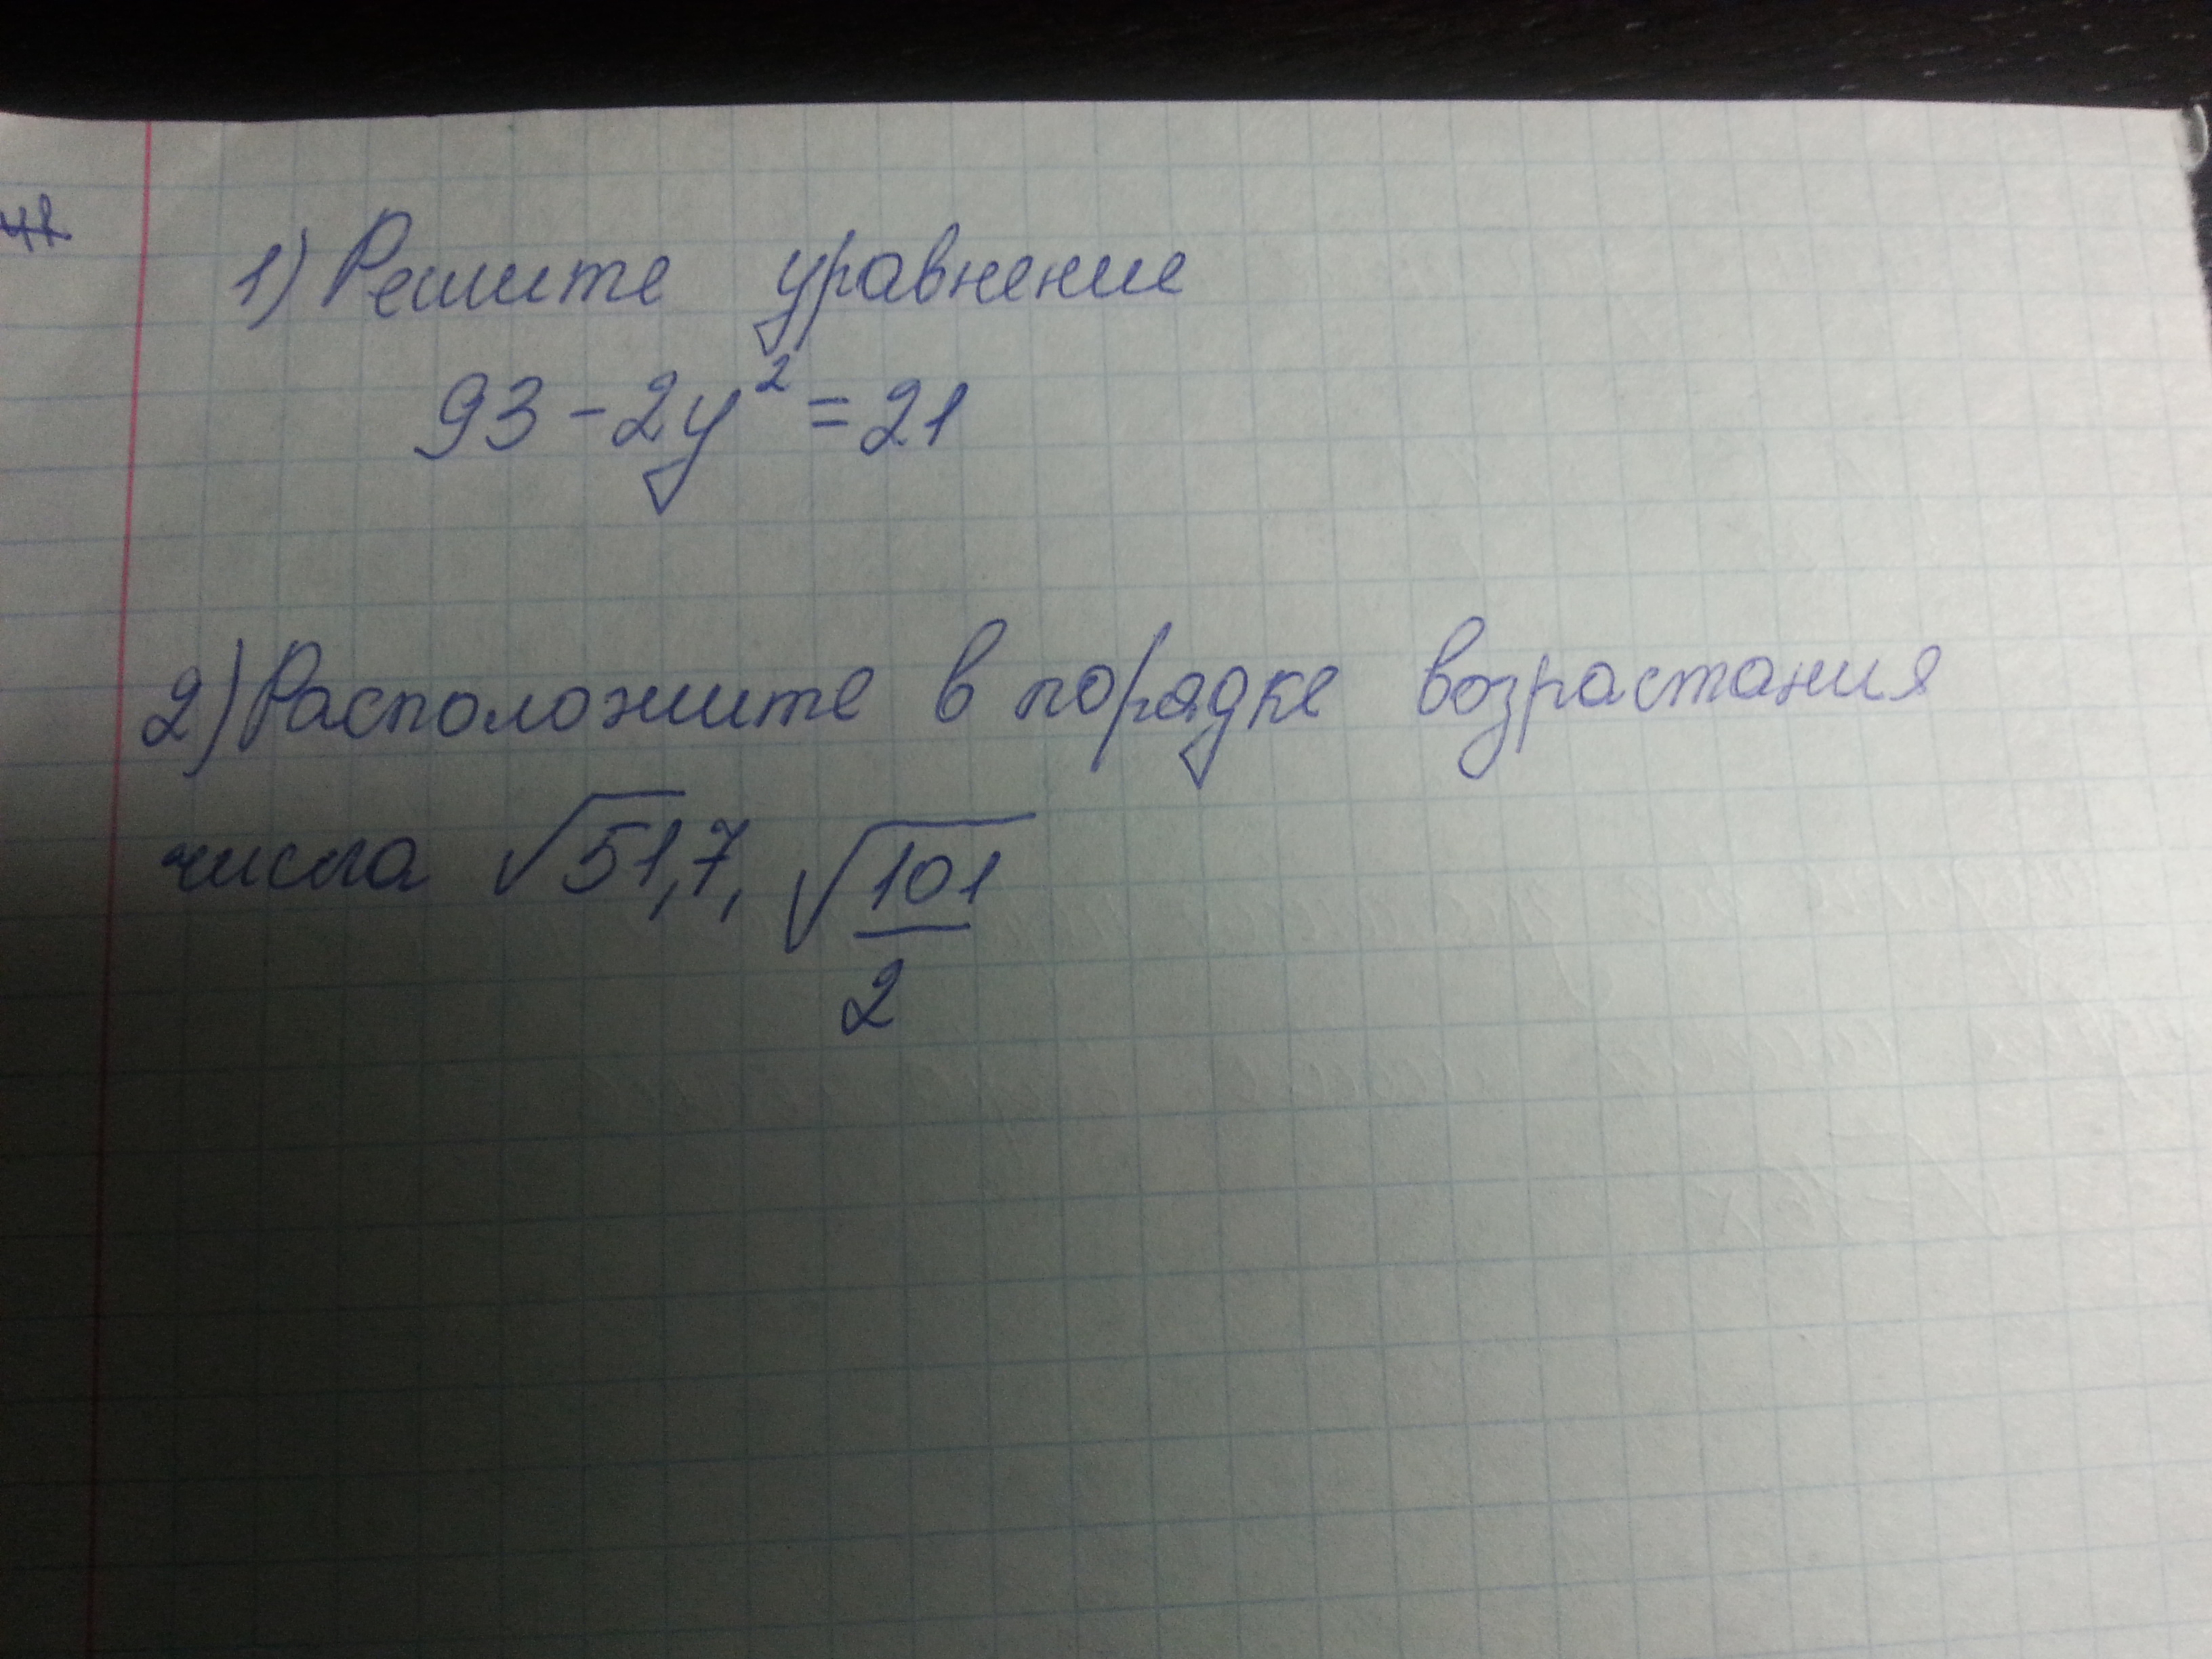 1) Решите уравнение
93 - 2y² = 21
2) Расположите в порядке возрастания
числа √51,7, √101/2